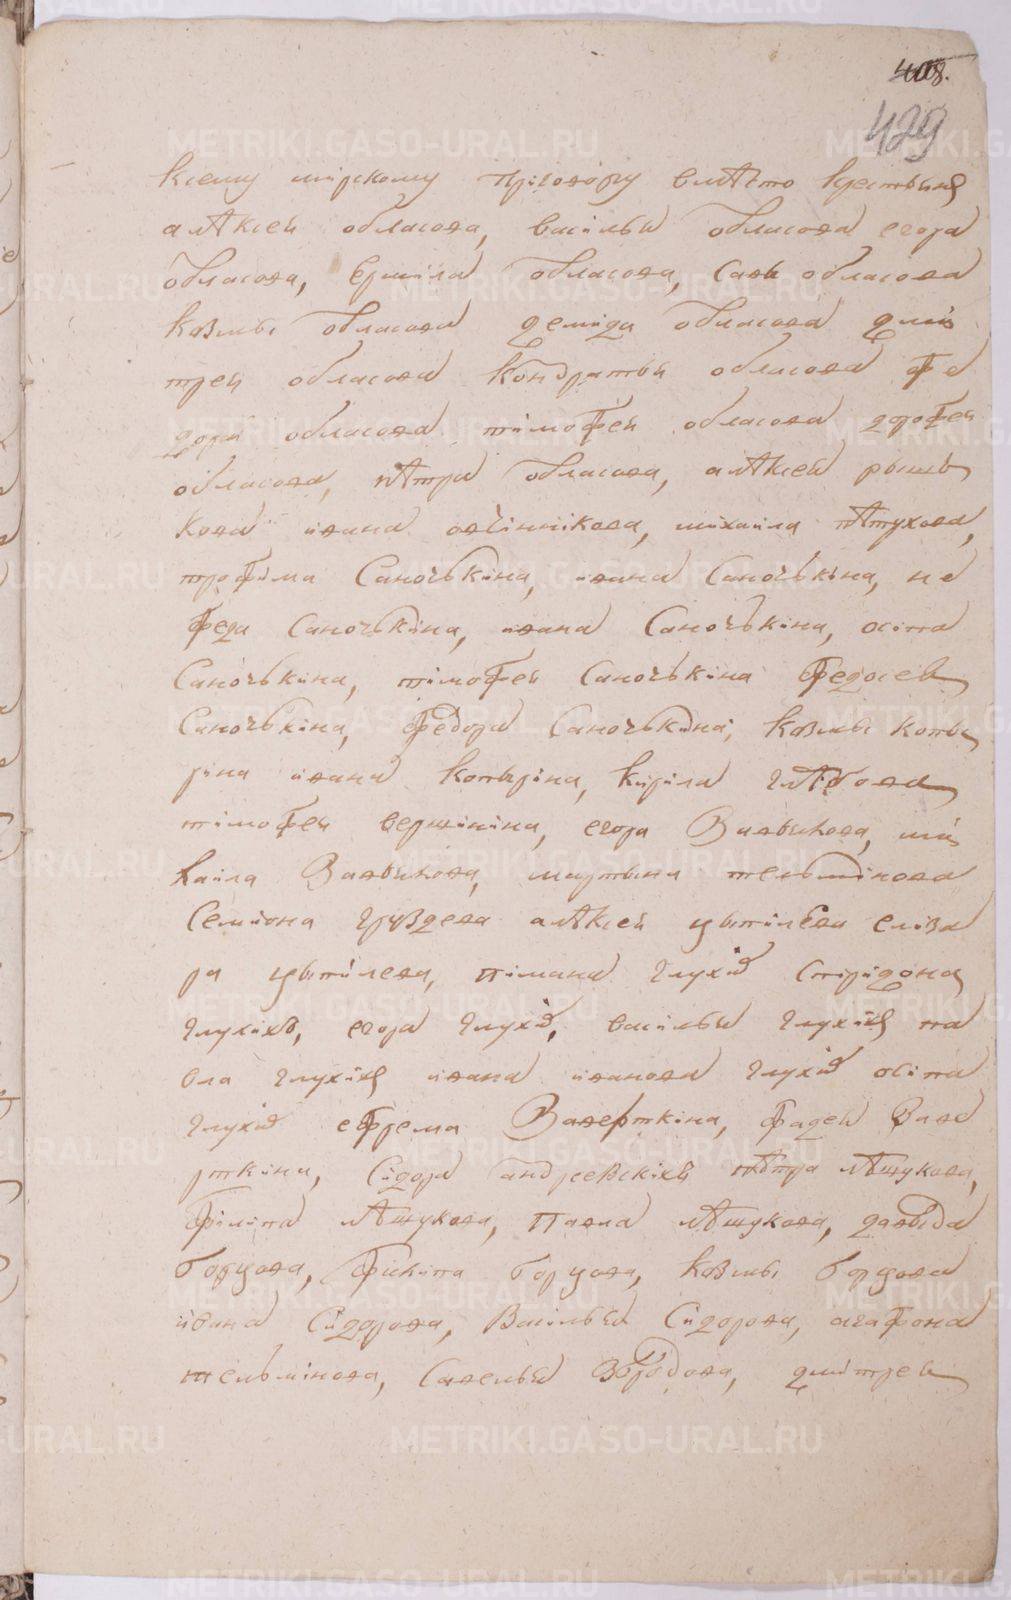 408.
429
Ксему мирскому приговору вмѣсто крестьянъ
алѣксея обласова, василья обласова егора
обласова, Ермила обласова, Савы обласова
Козмы обласова демида обласова дми
трея обласова Кондратья обласова фе
дора обласова тимофея обласова дорофея
обласова, пѣтра обласова, алѣксея рыжь
кова ивана овчинникова, михаила пѣтухова,
трофима Саночькина, ивана Саночькина, не
феда Саночькина, ивана Саночькина, осипа
Саночькина, тимофея Саночькина Федосея
Саночькина, Федора Саночькина, Козмы копы
рина ивана Копырина, Кирила глѣбова
тимофея вершинина, егора Завьялова, ми
хаила Завьялова, мартына тельминова
Семиона груздева алѣксея цыпилева елиза
ра цыпилева, пимана глухих Спиридона
глухихъ, егора глухих, василья глухихъ па
вла глухихъ ивана иванова глухих осипа
глухих ефрема Заверткина, фадея Заве
рткина, Сидора андреевскихъ пѣтра лѣщукова,
Филипа лѣщукова, Павла лѣщукова, давыда
борцова, Филипа борцова, Козмы борцова
ивана Сидорова, Василья Сидорова, агафона
тельминова, Савелья дмитрея